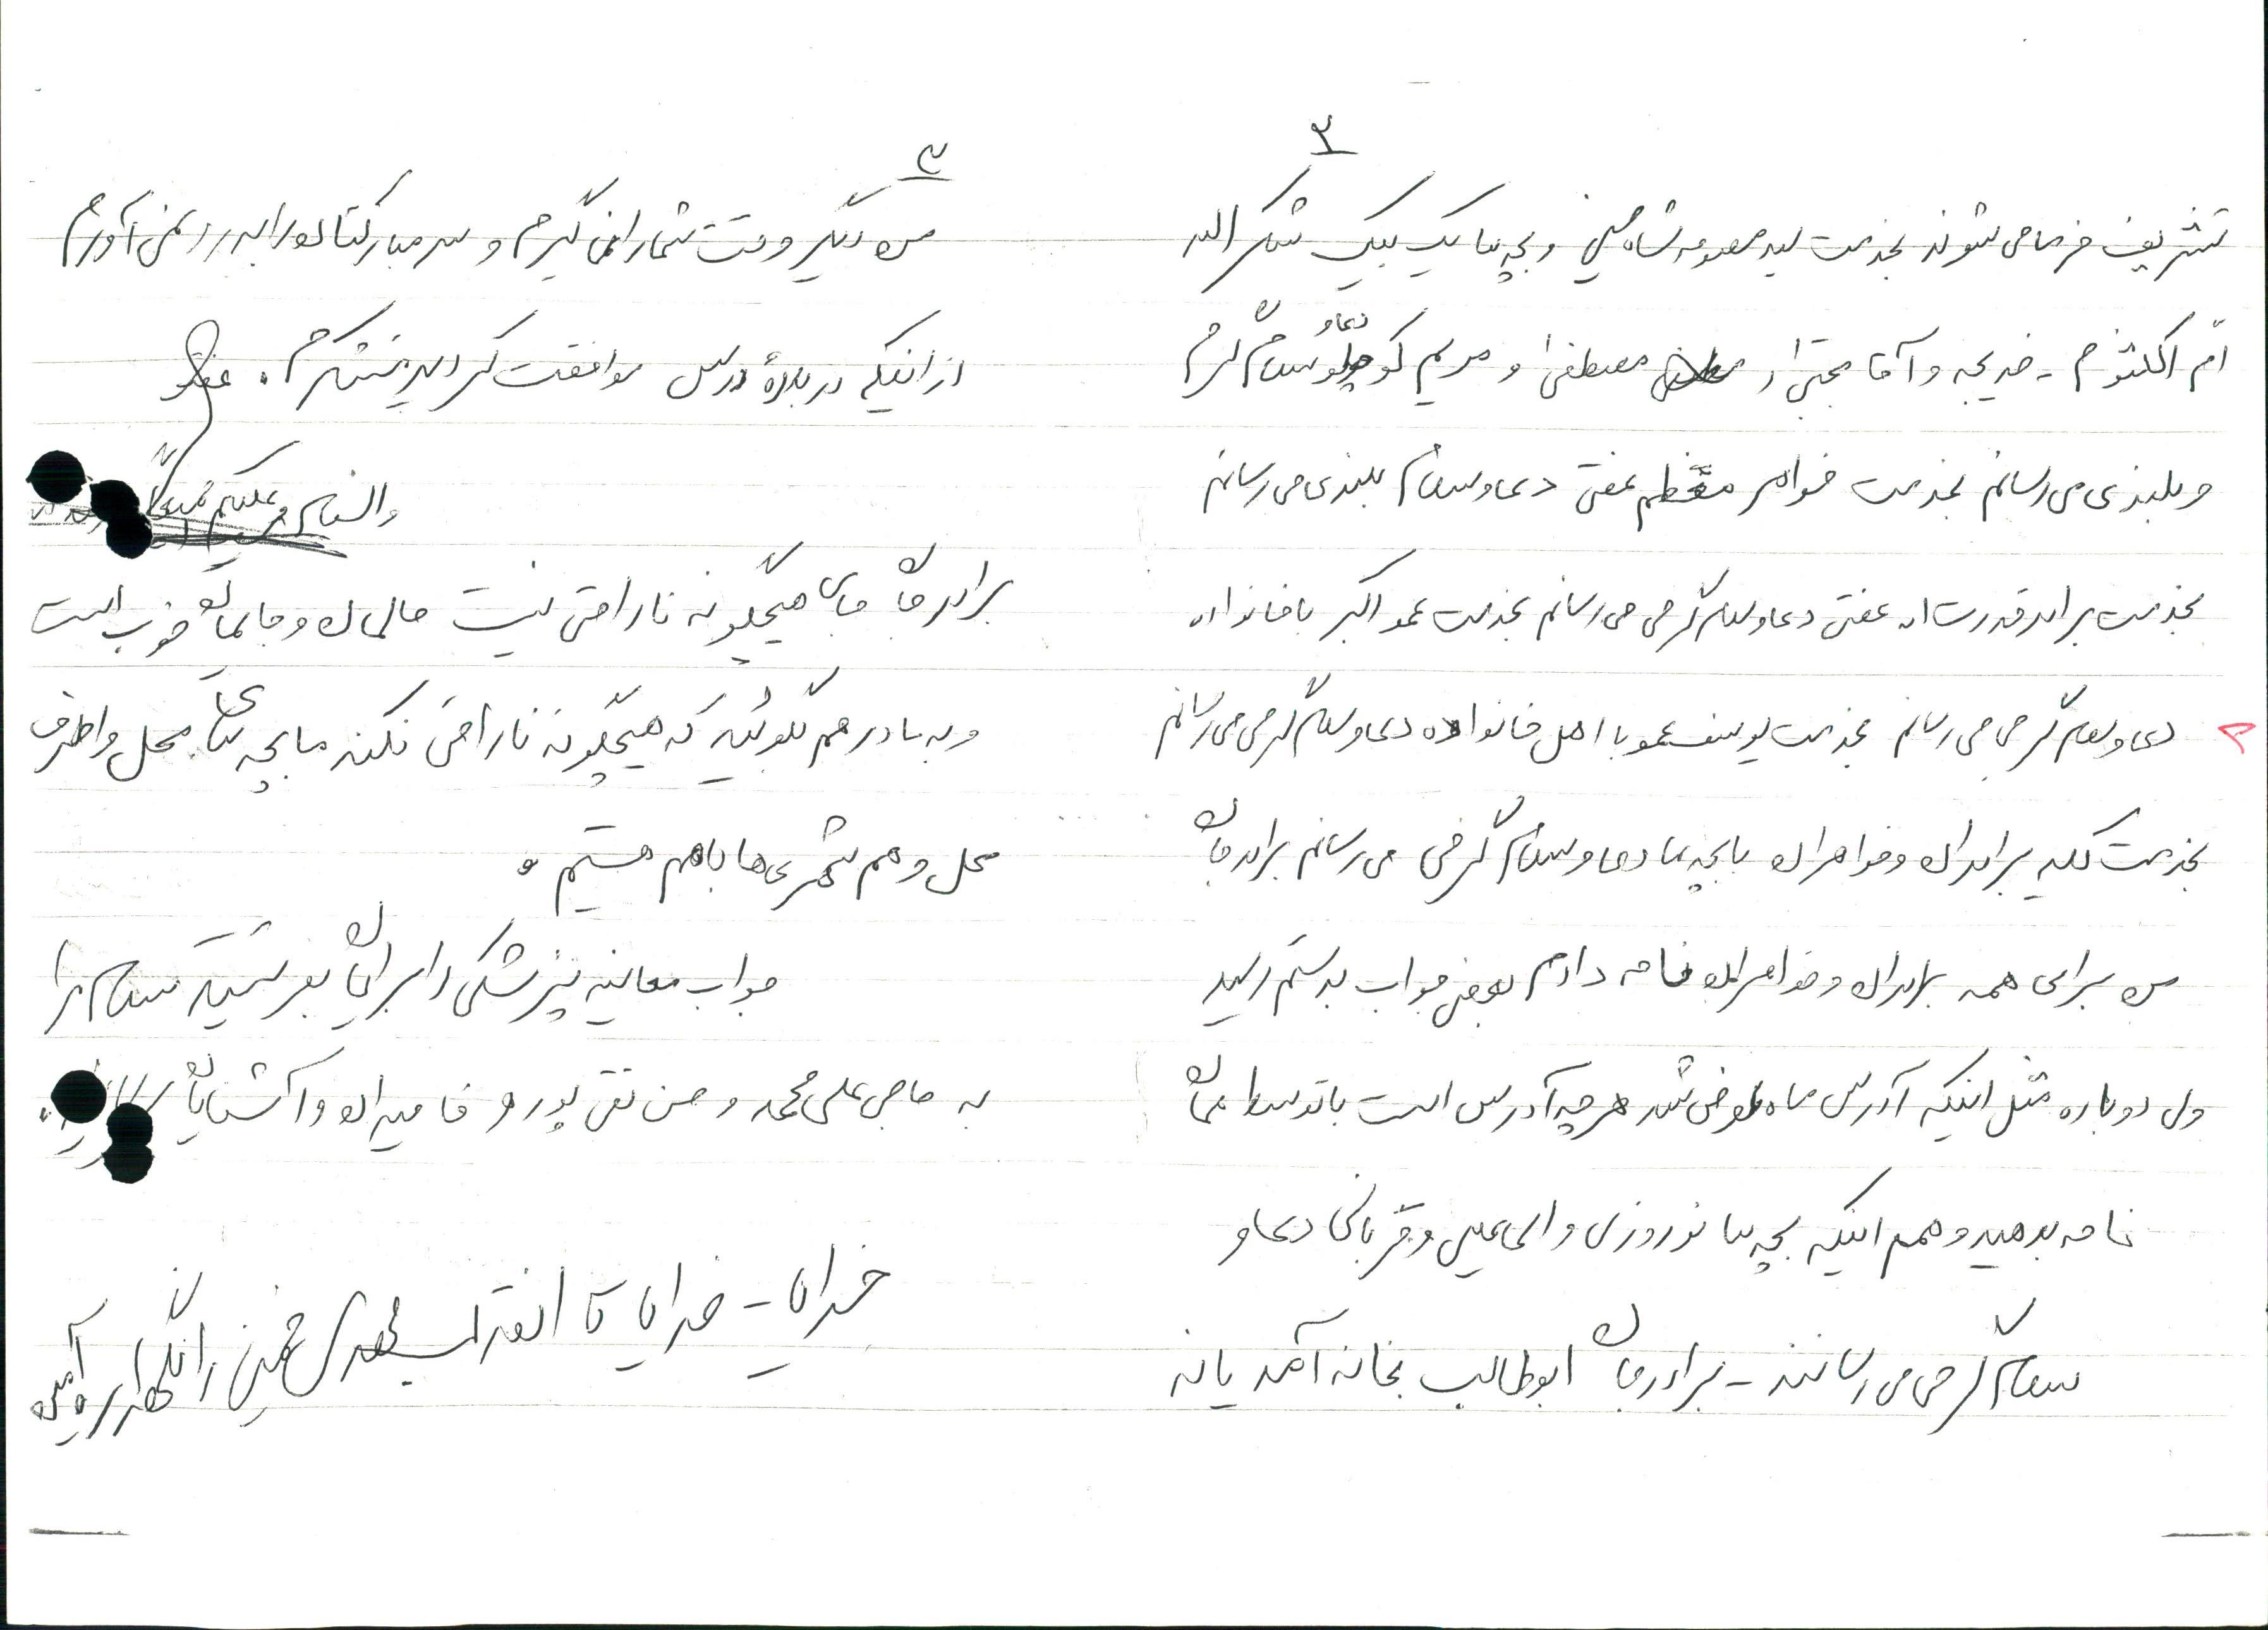 ۲
تشریف فرما می شوند بخدمت سید معصومه شاه و بچه ها یک بیک شکراله
ام اکلثوم - خدیجه و آقا مجتبی و مصطفی و مریم کوچلو دعاو سلام گرم
و بلندی می رسانم بخدمت خواهر معظم عفتی دعا و سلام بلندی می رسانم
بخدمت برادر قدرت اله عفتی دعا و سلام گرمی می رسانم بخدمت عمو اکبر با خانواده
دعا و سلام گرمی می رسانم بخدمت یوسف عمو با اهل خانواده دعا و سلام گرمی می رسانم
بخدمت کلیه برادران و خواهران با بچه ها دعا و سلام گرمی می رسانم برادر جان
من برای همه برادران و خواهران نامه دادم بعضی جواب بدستم رسید
ولی دوباره مثل اینکه آدرس ماه عوض شد هر چه آدرس است با توسط همان
نامه بدهید و هم اینکه بچه ها نوروزی و الماعیلی و قربانی دعا و
سلام گرمی می رسانند - برادر جان ابوطالب بخانه آمد یا نه
۳
من دیگر وقت شما را نمی گیرم و سر مبارکتان را بدرد نمی آورم
از اینکه درباره درس موافقت کردید متشکرم.
والسلام علیکم
برادر جان جای هیچگونه ناراحتی نیست حالمان و جایمان خوب است
و به مادر هم بگوئید که هیچگونه ناراحتی نکند ما بچه های محل و اطراف
محل و هم شهری ها باهم هستیم.
جواب معاینه پزشکی را برایمان بفرستید سلام مرا
به حاجی علی محمد و حسن تقی پور و فامیلان و آشنایان
خدایا - خدایا تا انقلاب مهدی خمینی را نگهدار آمین